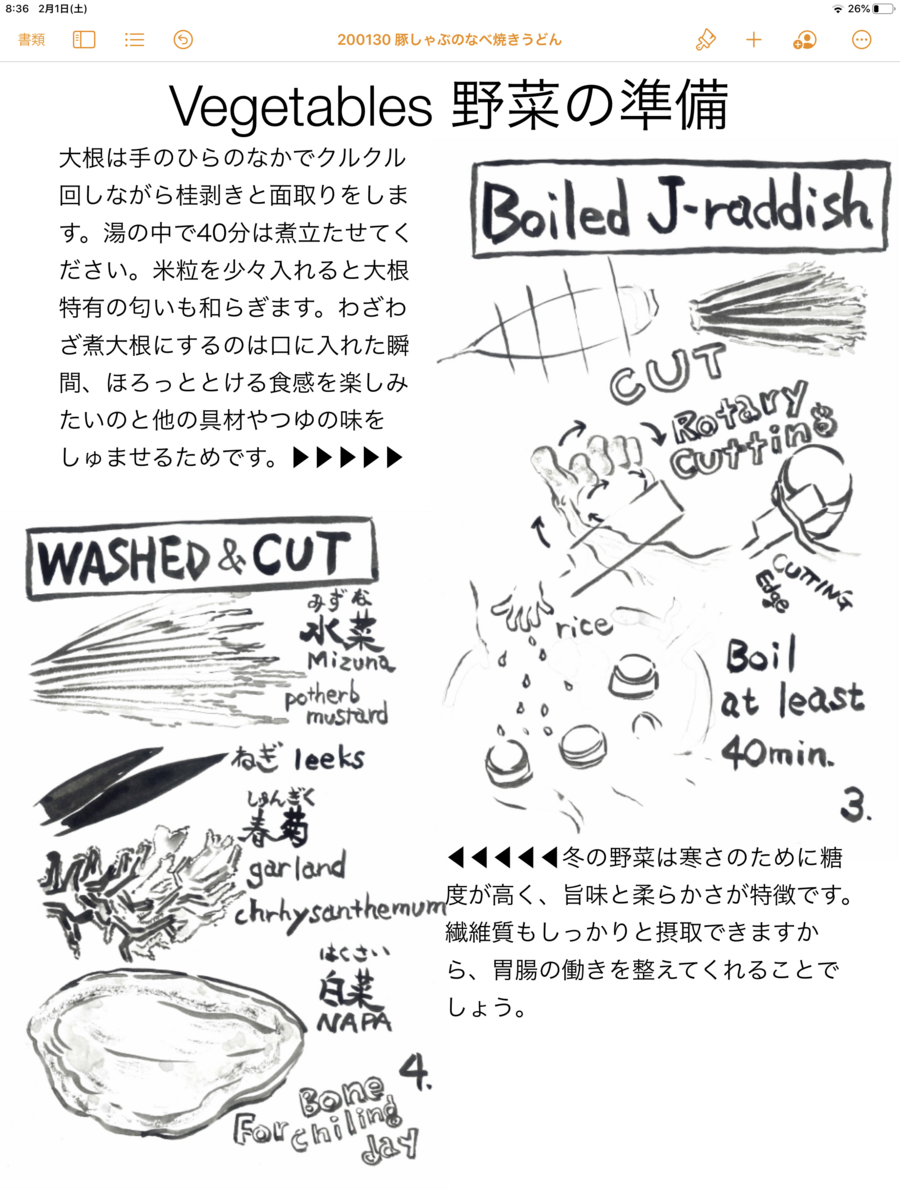 8:36 2月1日(土)
26%
書類
200130 豚しゃぶのなべ焼きうどん
Vegetables 野菜の準備
大根は手のひらのなかでクルクル
回しながら桂剥きと面取りをしま
す。湯の中で40分は煮立たせてく
ださい。米粒を少々入れると大根
特有の匂いも和らぎます。わざわ
ざ煮大根にするのは口に入れた瞬
間、ほろっととける食感を楽しみ
たいのと他の具材やつゆの味を
しゅませるためです。▶▶▶▶▶
Boiled J-raddish
CUT
Rotary
cutting
CUTTING
Edge
rice
Boil
at least
40min.
3.
WASHED & CUT
みずな
水菜
Mizuna
potherb
mustard
ねぎ leeks
しゅんぎく
春菊
garland
chrhysanthemum
はくさい
白菜
NAPA
4.
Bone
For chiling
day
◀◀◀◀◀冬の野菜は寒さのために糖
度が高く、旨味と柔らかさが特徴です。
繊維質もしっかりと摂取できますか
ら、胃腸の働きを整えてくれることで
しょう。